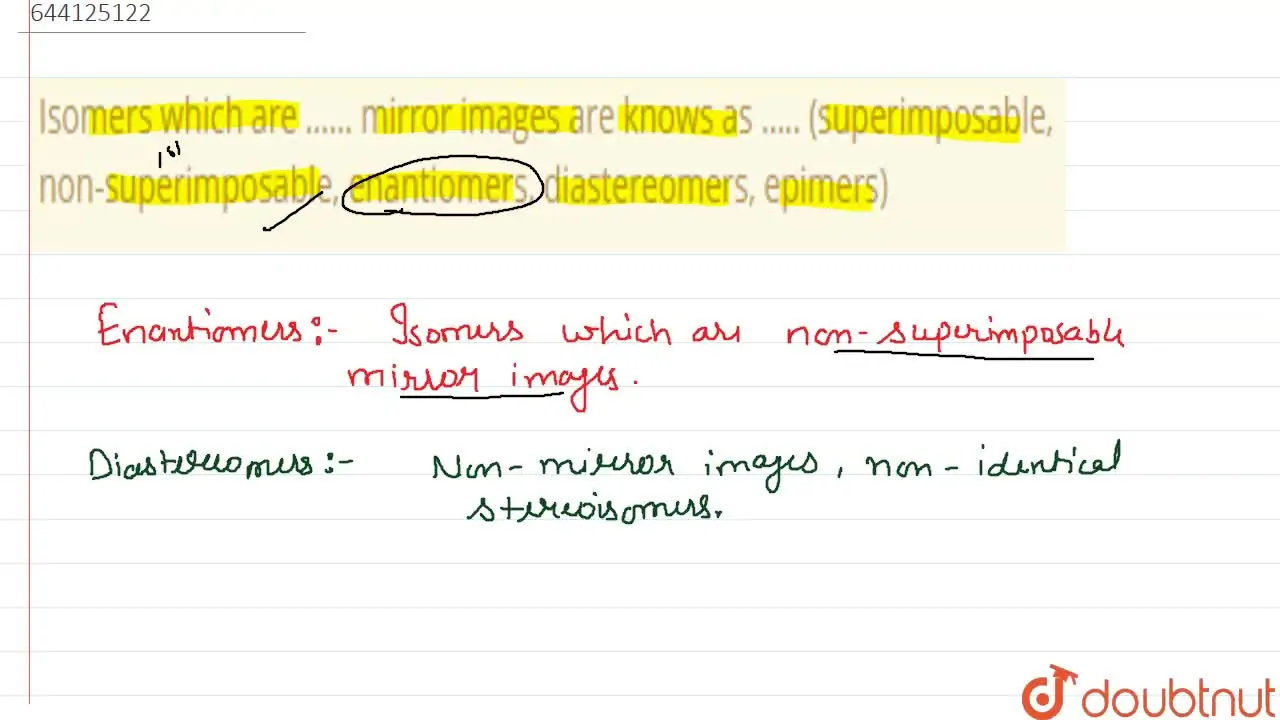 644125122
Isomers which are ...... mirror images are knows as ..... (superimposable,
non-superimposable, enantiomers, diastereomers, epimers)
Enantiomers:- Isomers which are non-superimposable
mirror images.
Diastereomers:- Non-mirror images, non-identical
stereoisomers.
doubtnut